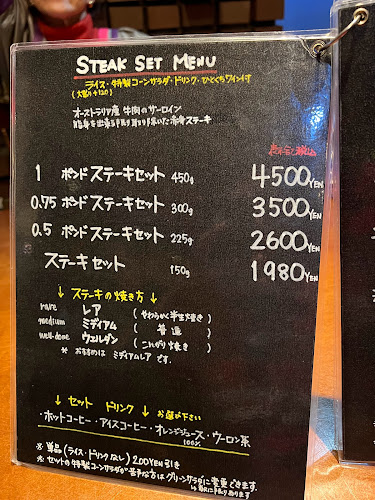 STEAK SET MENU
ライス・特製コーンサラダ・ドリンク・ひとくちワイン付
(大盛り+120)
オーストラリア産 牛肉のサーロイン
脂身を出来る限り取り除いた赤身ステーキ
税込
1 ポンドステーキセット 450g 4500YEN
0.75 ポンドステーキセット 300g 3500YEN
0.5 ポンドステーキセット 225g 2600YEN
ステーキセット 150g 1980YEN
↓ ステーキの焼き方 ↓
rare レア (やわらかく半生焼き)
medium ミディアム (普通)
well-done ウェルダン (こんがり焼き)
※ おすすめは ミディアムレア です。
↓ セット ドリンク ↓ お選び下さい
・ホットコーヒー・アイスコーヒー・オレンジジュース・ウーロン茶
100%
※ 単品(ライス・ドリンクなし) 200YEN引き
※ セットの特製コーンサラダが苦手な方はグリーンサラダに変更できます。